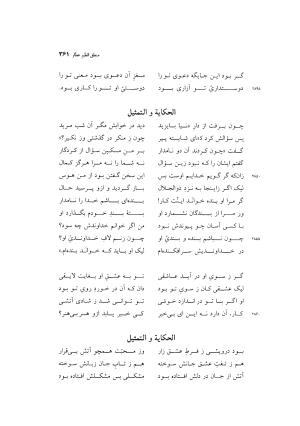 منطق الطیر عطّار ۳۶۱
گر بود این جایگه دعوی تو را مغز آن دعوی بود معنی تو را
۲۸۴۸ دوستداری تو آزاری بود دوستی او تو را کاری بود.
الحکایة و التمثیل
چون برفت از دار دنیا بایزید دید در خوابش مگر آن شب مرید
پس سؤالش کرد کای شایسته پیر چون ز منکر درگذشتی وز نکیر؟»
گفت «چون کردند آن دو نامدار بر من مسکین سؤال از کردگار
گفتم ایشان را که نبود زین سؤال نه شما را نه مرا هرگز کمال
۲۸۵۰ زانکه گر گویم خدایم اوست بس این سخن گفتن بود از من هوس
لیک اگر زاینجا به نزد ذوالجلال باز گردید و ازو پرسید حال
گر مرا او بنده خواند اینْت کار! بنده‌ای باشم خدا را نامدار
ور مرا از بندگان نشمارد او بستهٔ بند خودم بگذارد او
با کسی آسان چو پیوندش نبود من اگر خوانم خداوندش چه سود؟
۲۸۵۵ چون نباشم بنده و بندی او چون زنم لاف خداوندی او؟
در خداوندیش سرافکنده‌ام لیک او باید که خواند بنده‌ام»
گر ز سوی او در آید عاشقی تو به عشق او بغایت لایقی
لیک عشقی کان ز سوی تو بود دان که آن در خورد روی تو بود
او اگر با تو در اندازد خوشی تو توانی شد ز شادی آتشی
۲۸۶۰ کار، آن دارد نه این ای بی‌خبر کی خبر یابد ازو هر بی‌هنر؟
الحکایة و التمثیل
بود درویشی ز فرط عشق زار وز محبّت همچو آتش بی‌قرار
هم ز تفّ عشق جانش سوخته هم ز تاب جان زبانش سوخته
آتش از جان در دلش افتاده بود مشکلی بس مشکلش افتاده بود